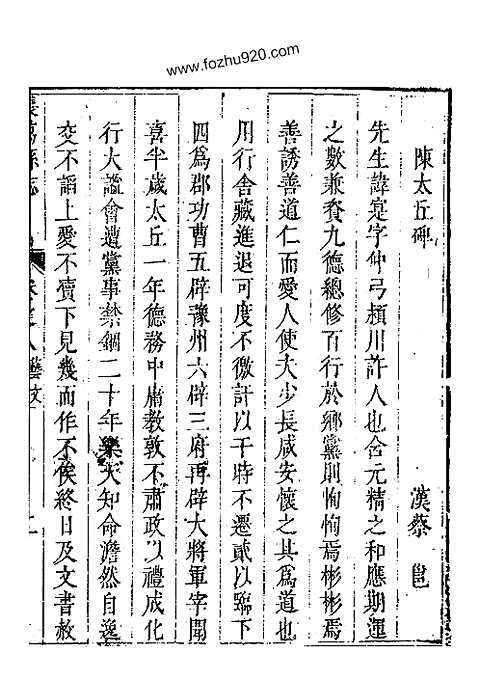 www.fozhu920.com
陳太丘碑 漢蔡邕
先生諱寔字仲弓潁川許人也含元精之和應期運
之數兼資九德總修百行於鄉黨則恂恂焉彬彬焉
善誘善道仁而愛人使夫少長咸安懷之其爲道也
用行舍藏進退可度不徼訐以干時不遷貳以臨下
四爲郡功曹五辟豫州六辟三府再辟大將軍宰聞
喜半歲太丘一年德務中庸教敦不肅政以禮成化
行大謐會遭黨事禁錮二十年樂天知命澹然自逸
交不謟上愛不凟下見幾而作不俟終日及文書赦
長葛縣志 卷之八藝文 二